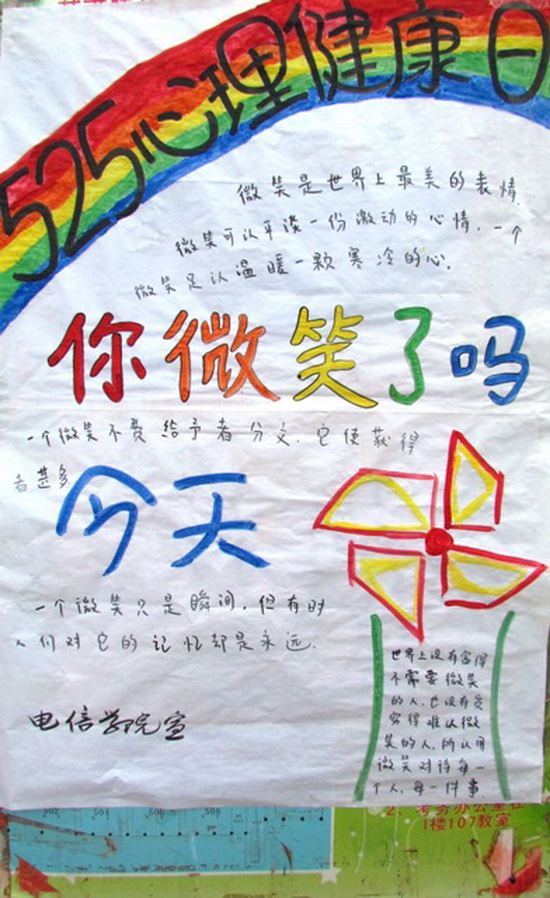 525心理健康日
微笑是世界上最美的表情
微笑可以平淡一份激动的心情，一个
微笑足以温暖一颗寒冷的心.
你微笑了吗
一个微笑不费给予者分文，它使获得
者甚多
今天
一个微笑只是瞬间，但有时
人们对它的记忆却是永远.
电信学院宣
世界上没有富得
不需要微笑
的人，也没有贫
穷得难以微
笑的人，所以用
微笑对待每一
个人，每一件事.
502 504 506 508
2、考务办公室在
1楼107教室